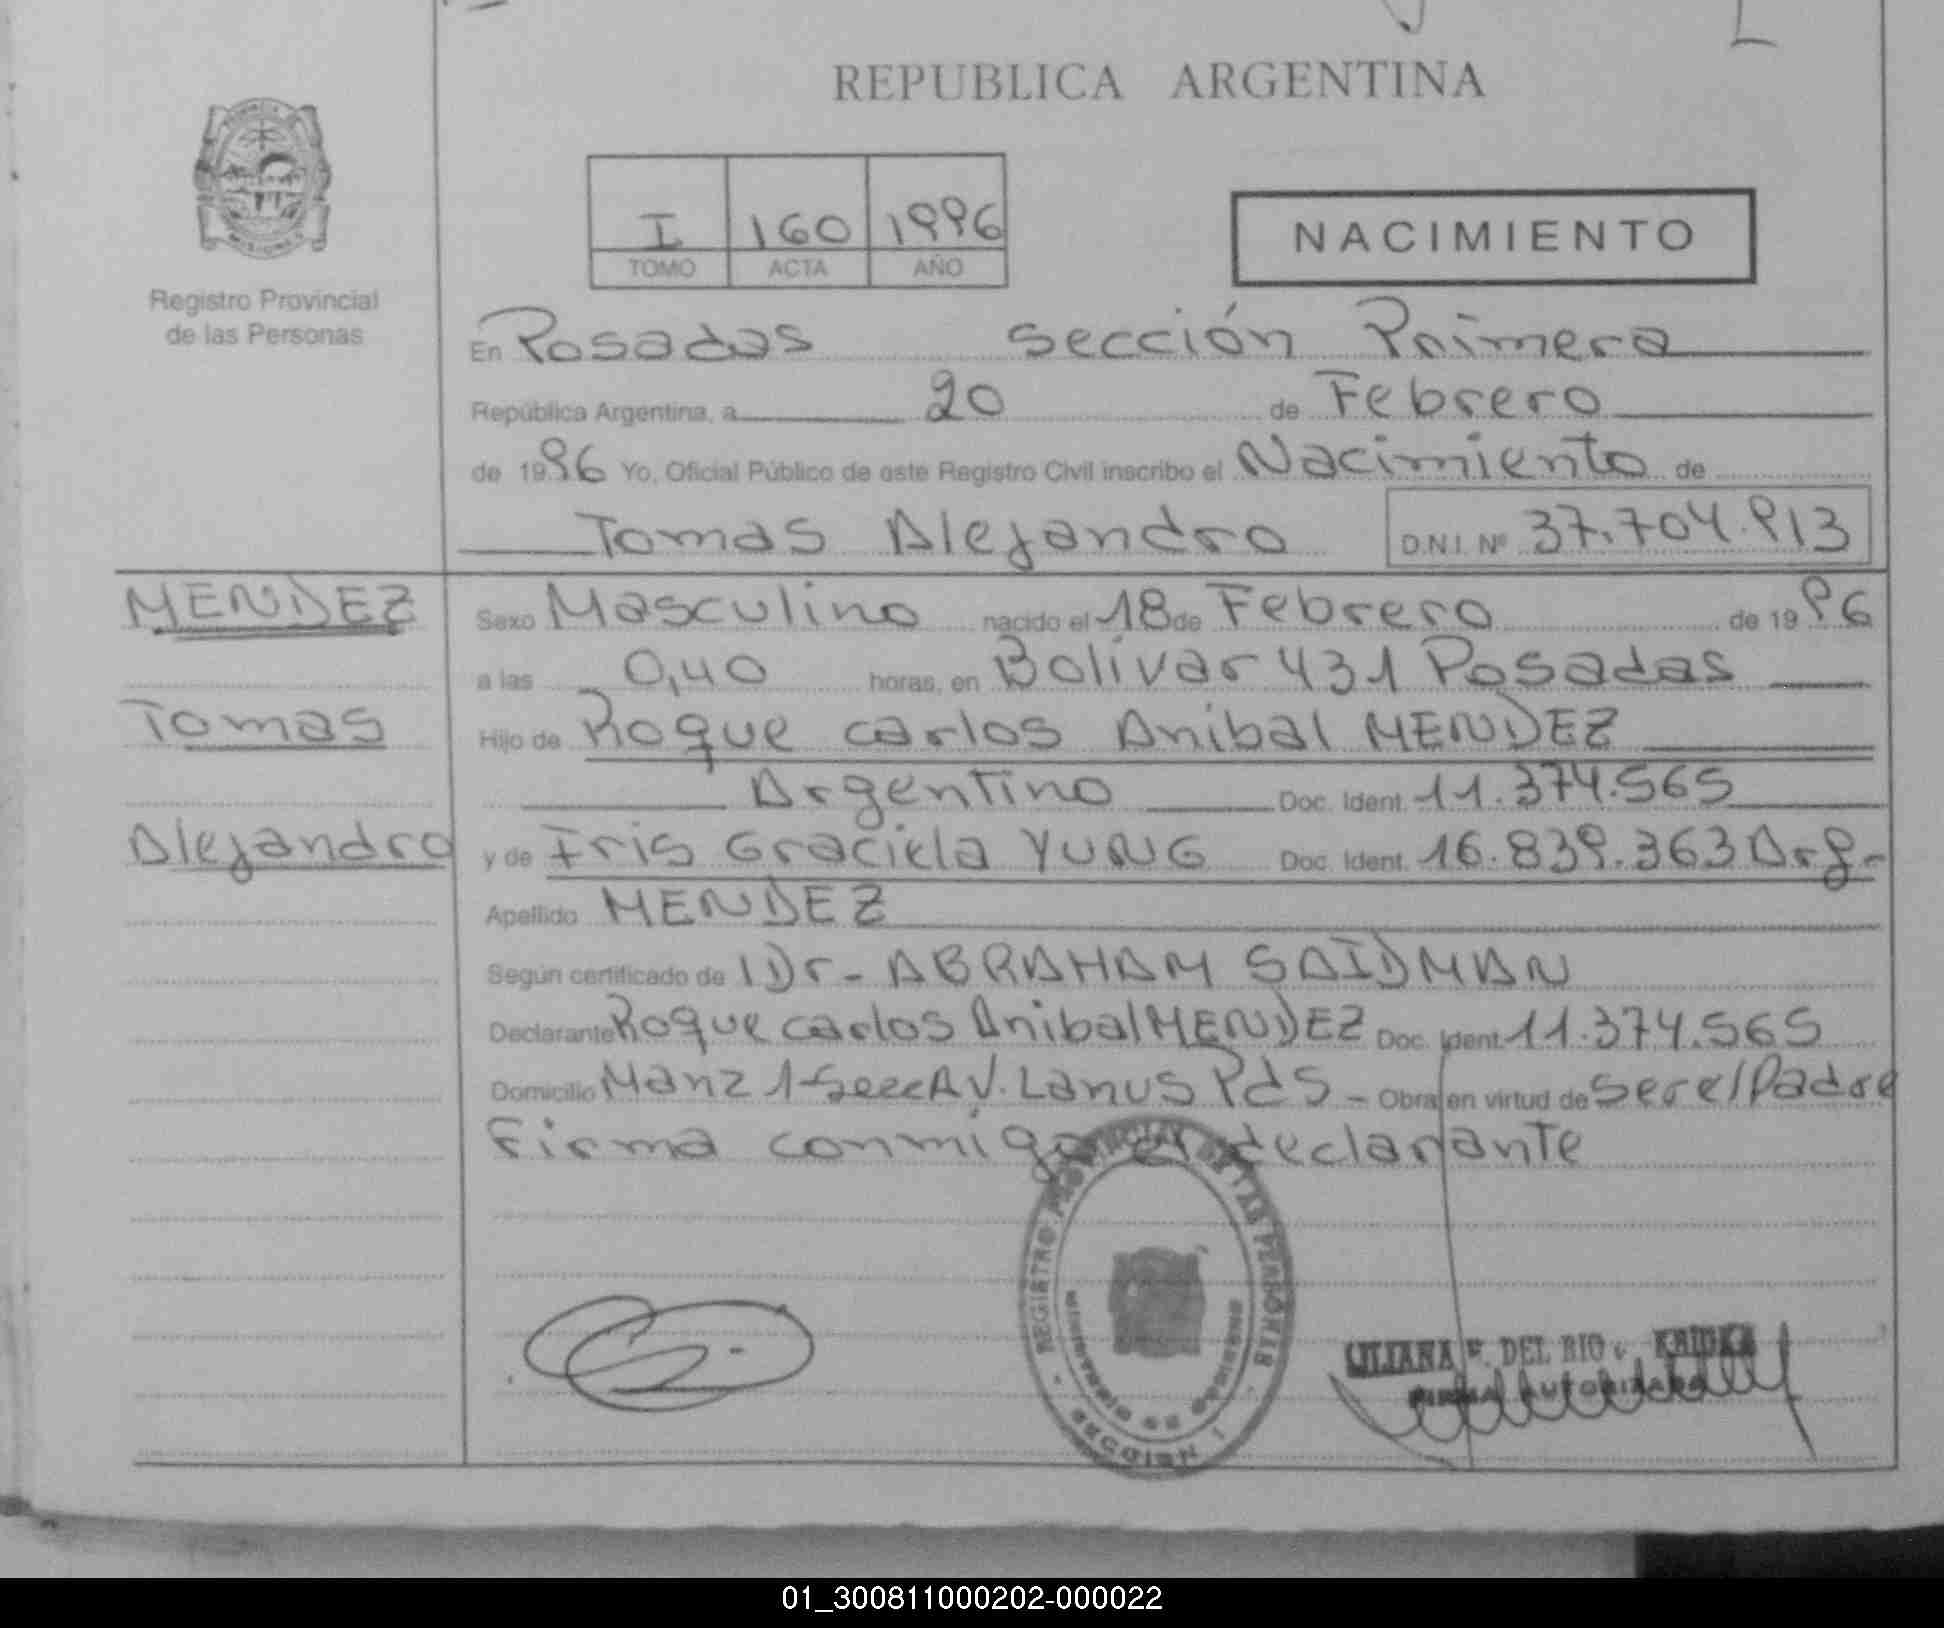 REPUBLICA ARGENTINA
I 160 1996
TOMO ACTA AÑO
NACIMIENTO
Registro Provincial
de las Personas
En Posadas sección Primera
República Argentina, a 20 de Febrero
de 1996 Yo, Oficial Público de este Registro Civil inscribo el Nacimiento de
Tomas Alejandro D.N.I. Nº 37.704.913
MENDEZ
Tomas
Alejandro
Sexo Masculino nacido el 18 de Febrero de 1996
a las 0,40 horas, en Bolivar 431 Posadas
Hijo de Roque carlos Anibal MENDEZ
Argentino Doc. Ident. 11.374.565
y de Iris Graciela YUNG Doc. Ident. 16.839.363 Arg-
Apellido MENDEZ
Según certificado de Dr- ABRAHAM SAIDMAN
Declarante Roque carlos Anibal MENDEZ Doc. Ident. 11.374.565
Domicilio Manz 1- Secc AV. Lanus Pds - Obra en virtud de ser el Padre
Firma conmigo el declarante
REGISTRO PROVINCIAL DE LAS PERSONAS
MINISTERIO DE GOBIERNO
SECCION 1
LILIANA DEL RIO
FIRMA AUTORIZADA
01_300811000202-000022